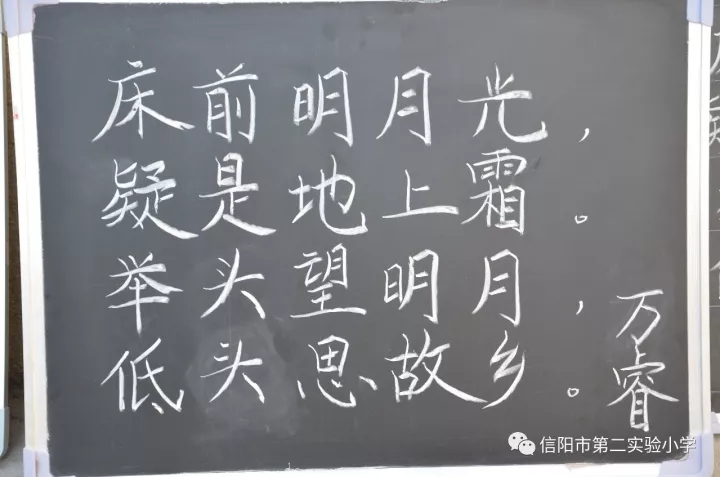 床前明月光，
疑是地上霜。
举头望明月，
低头思故乡。
万睿
信阳市第二实验小学